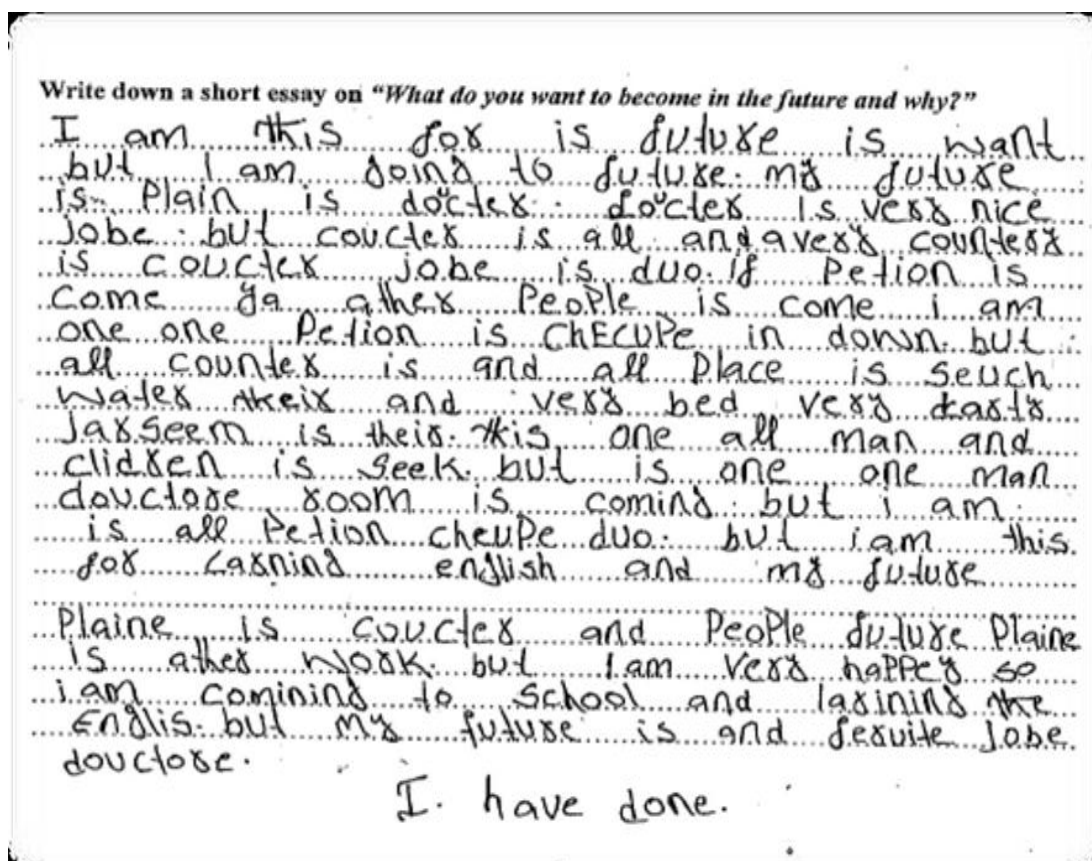 Write down a short essay on “What do you want to become in the future and why?”
I am this for is future is want
but I am going to future. my future
is Plain is docter. docter is very nice
jobe. but coucter is all and avery countery
is coucter jobe is duo. if Petion is
come ga ather PeoPle is come i am
one one Petion is ChECUPe in down. but
all counter is and all Place is seuch
water their and very bed very
Jarseem is their. this one all man and
clidren is seek. but is one one man
douctore room is coming. but i am
is all Petion cheuPe duo. but i am this
for Larning english and my future
Plaine is coucter and PeoPle future Plaine
is ather work. but I am very happey so
i am comining to school and larining the
Englis. but my future is and feruite Jobe
douctore.
I. have done.